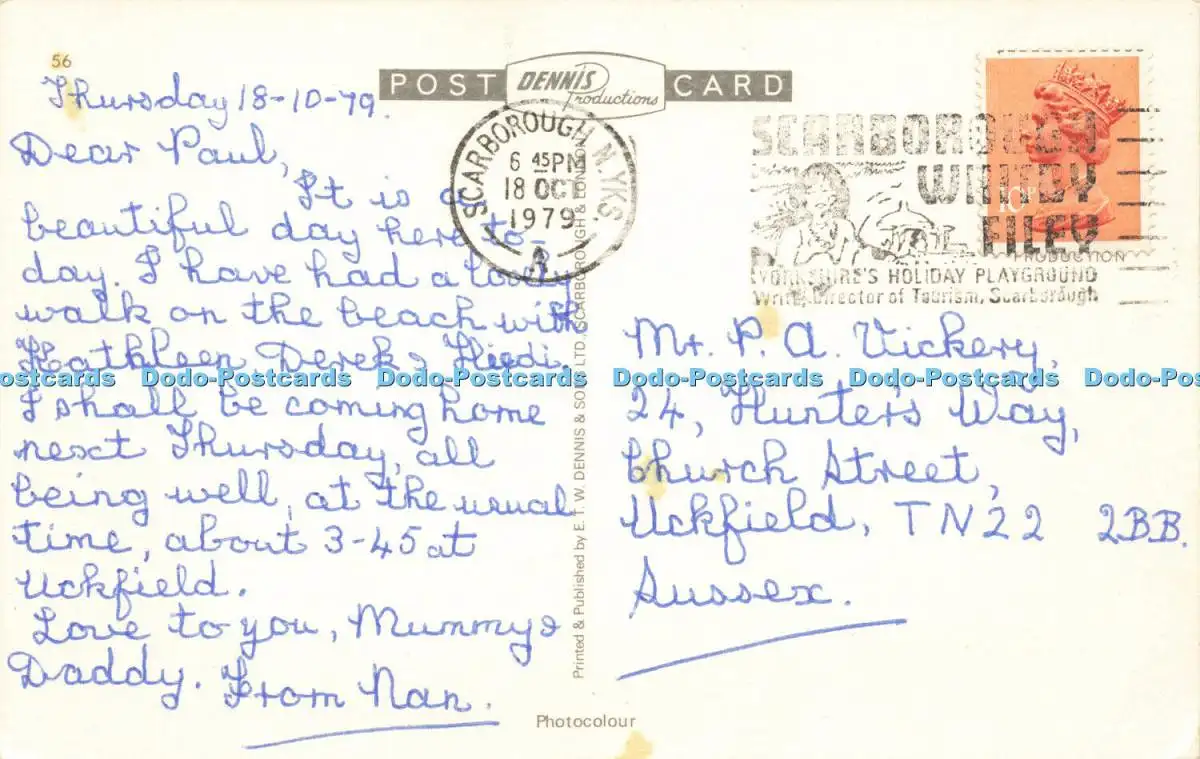 56
POST DENNIS Productions CARD
Thursday 18-10-79.
Dear Paul,
It is a
beautiful day here to-
day. I have had a lovely
walk on the beach with
Kathleen Derek & Hiedi.
I shall be coming home
next Thursday, all
being well, at the usual
time, about 3-45 at
Uckfield.
Love to you, Mummy &
Daddy. From Nan.
SCARBOROUGH N. YKS.
6 45PM
18 OCT
1979
A
SCARBOROUGH
WHITBY
FILEY
YORKSHIRE'S HOLIDAY PLAYGROUND
Write, Director of Tourism, Scarborough
10P
PRODUCTION
Printed & Published by E. T. W. DENNIS & SONS LTD. SCARBOROUGH & LONDON
Mr. P. A. Vickery,
24, Hunter's Way,
Church Street,
Uckfield, TN22 2BB.
Sussex.
Photocolour
Dodo-Postcards Dodo-Postcards Dodo-Postcards Dodo-Postcards Dodo-Postcards Dodo-Postcards